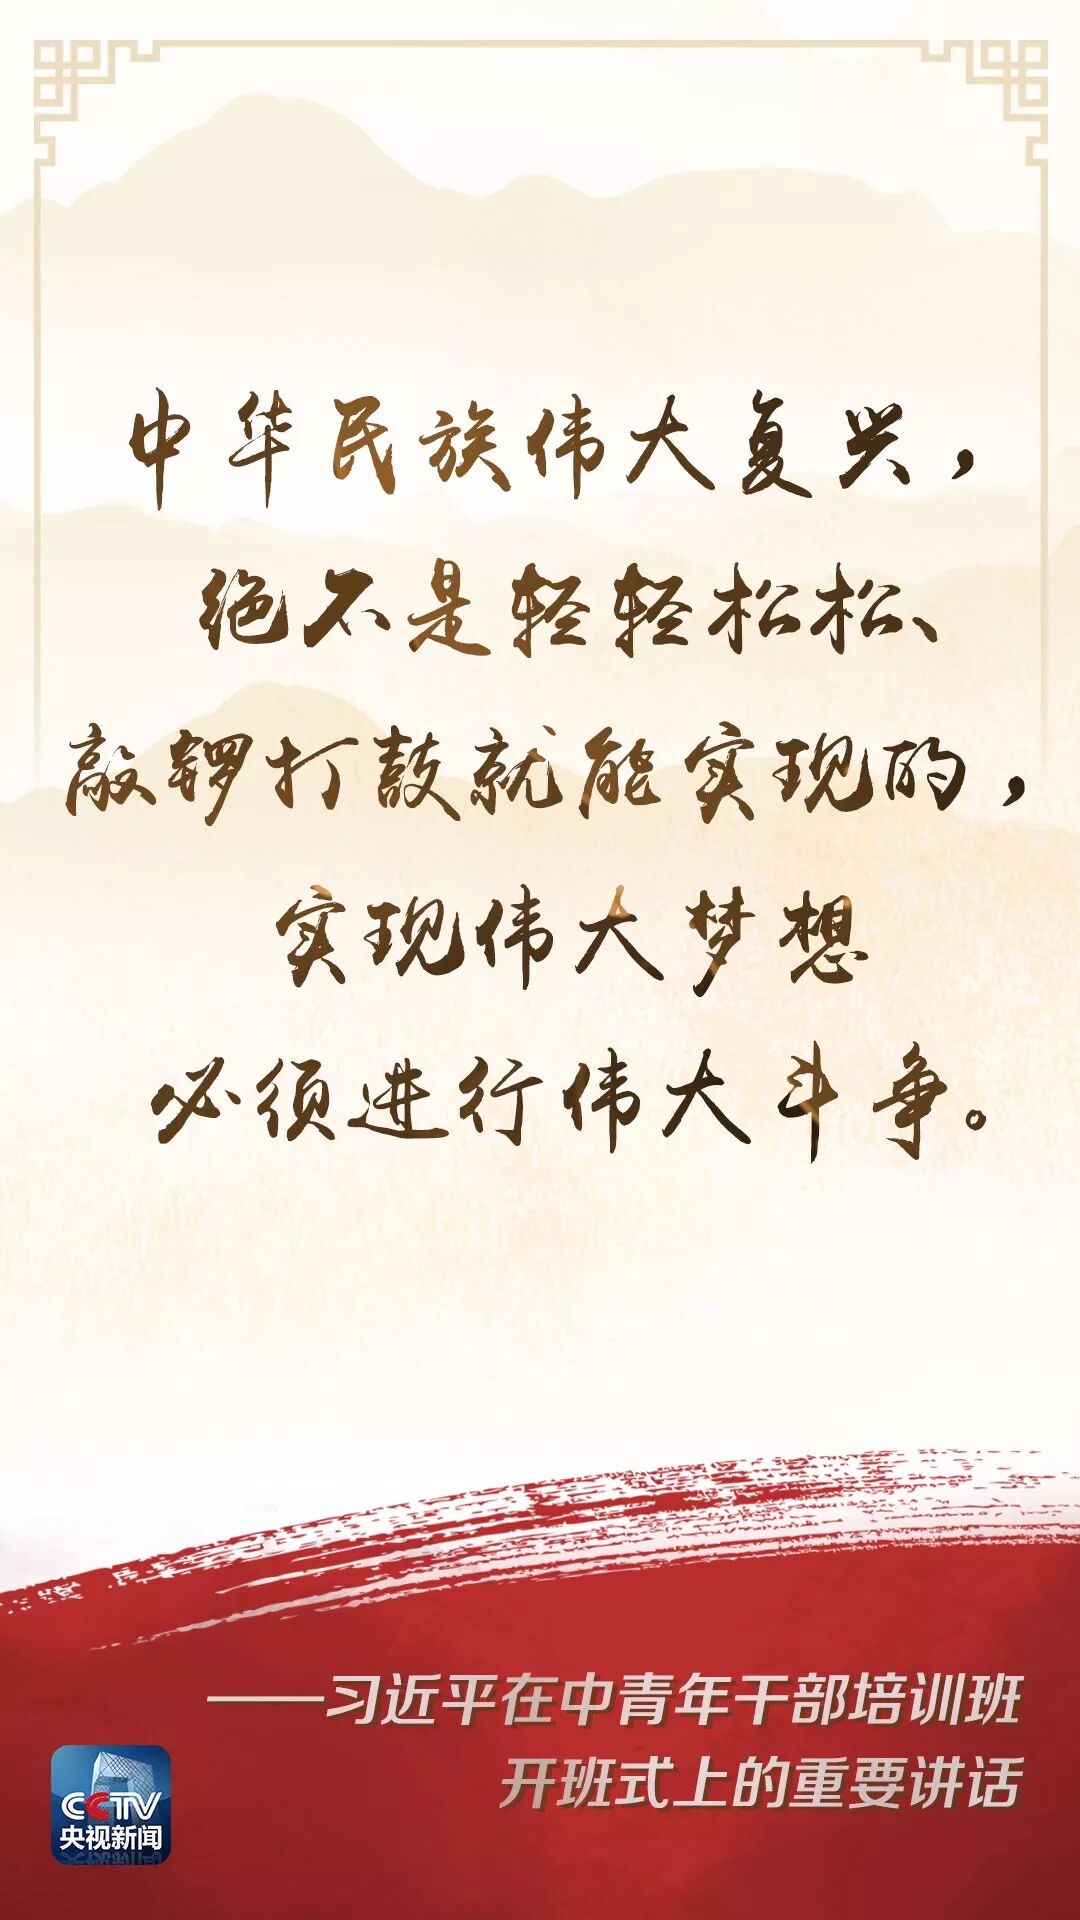 中华民族伟大复兴，
绝不是轻轻松松、
敲锣打鼓就能实现的，
实现伟大梦想
必须进行伟大斗争。
——习近平在中青年干部培训班
开班式上的重要讲话
CCTV
央视新闻